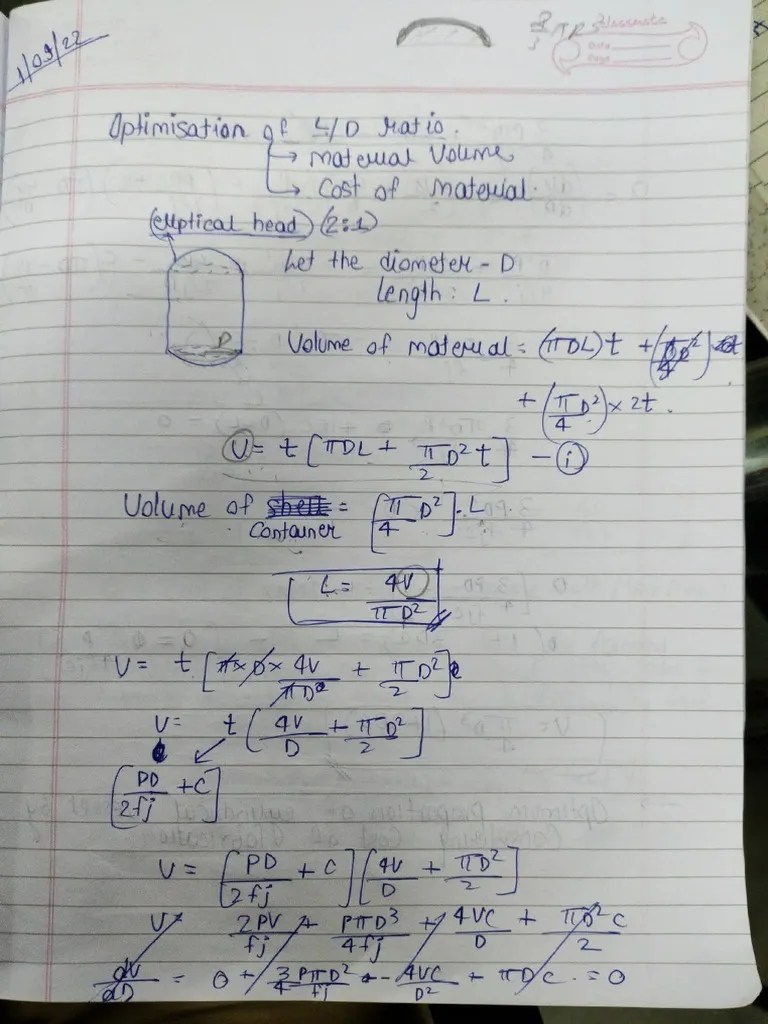 1/09/22
classmate
Date
Page
Optimisation of L/D ratio.
→ material volume
→ Cost of material.
(elliptical head) (2:1)
Let the diameter - D
length : L.
D
Volume of material = (πDL)t +
+ (π/4 D²) × 2t.
V = t [πDL + π/2 D² t] - (i)
Volume of shell = [π/4 D²] . L.
Container
L = 4V/πD²
V = t [π × D × 4V/πD² + πD²/2]
V = t (4V/D + πD²/2]
[PD/2fj + C]
V = [PD/2fj + C] [4V/D + πD²/2]
V = 2PV/fj + PπD³/4fj + 4VC/D + πD²C/2
dV/dD = 0 + 3/4 PπD²/fj - 4VC/D² + πDC = 0